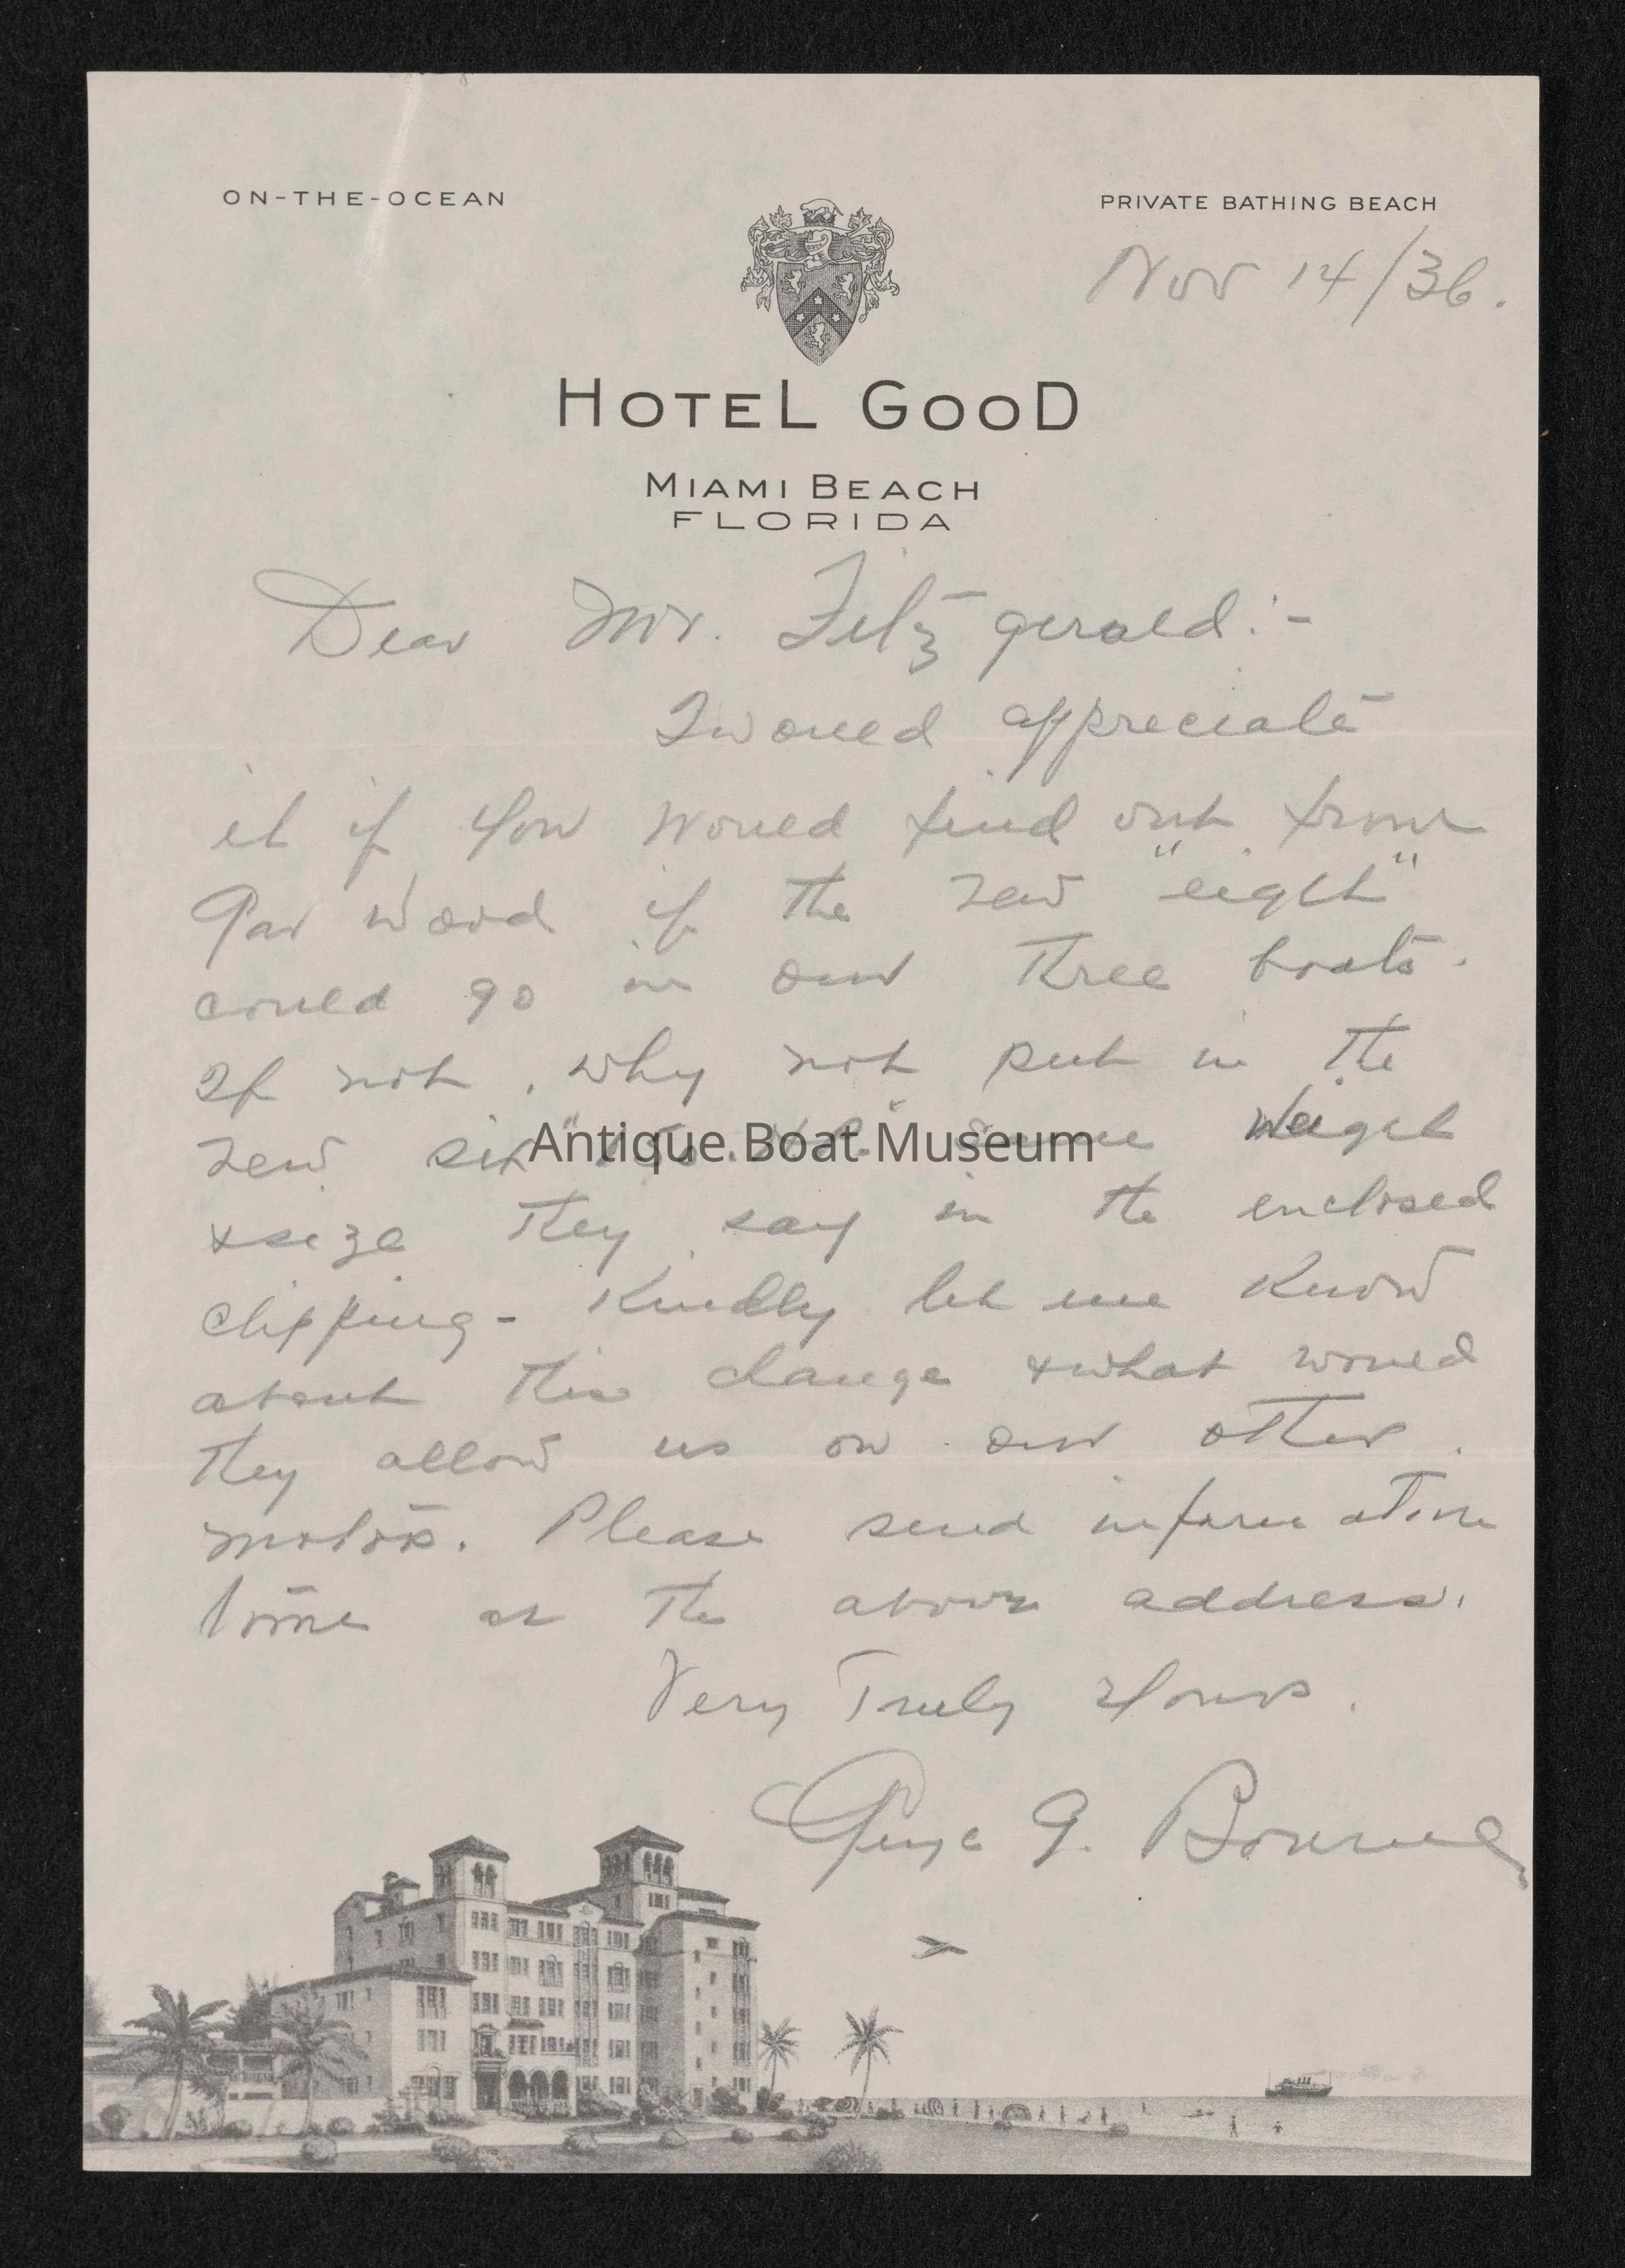 ON-THE-OCEAN
PRIVATE BATHING BEACH
Nov 14/36.
HOTEL GOOD
MIAMI BEACH
FLORIDA
Dear Mr. Fitzgerald:-
I would appreciate
it if you would find out from
Gar Wood if the new "eight"
could go in our three boats.
If not, why not put in the
new six "150 H.P." same weight
& size they say in the enclosed
clipping - Kindly let me know
about this change & what would
they allow us on our other
motors. Please send information
to me at the above address.
Very Truly Yours.
George G. Bourne
Antique Boat Museum